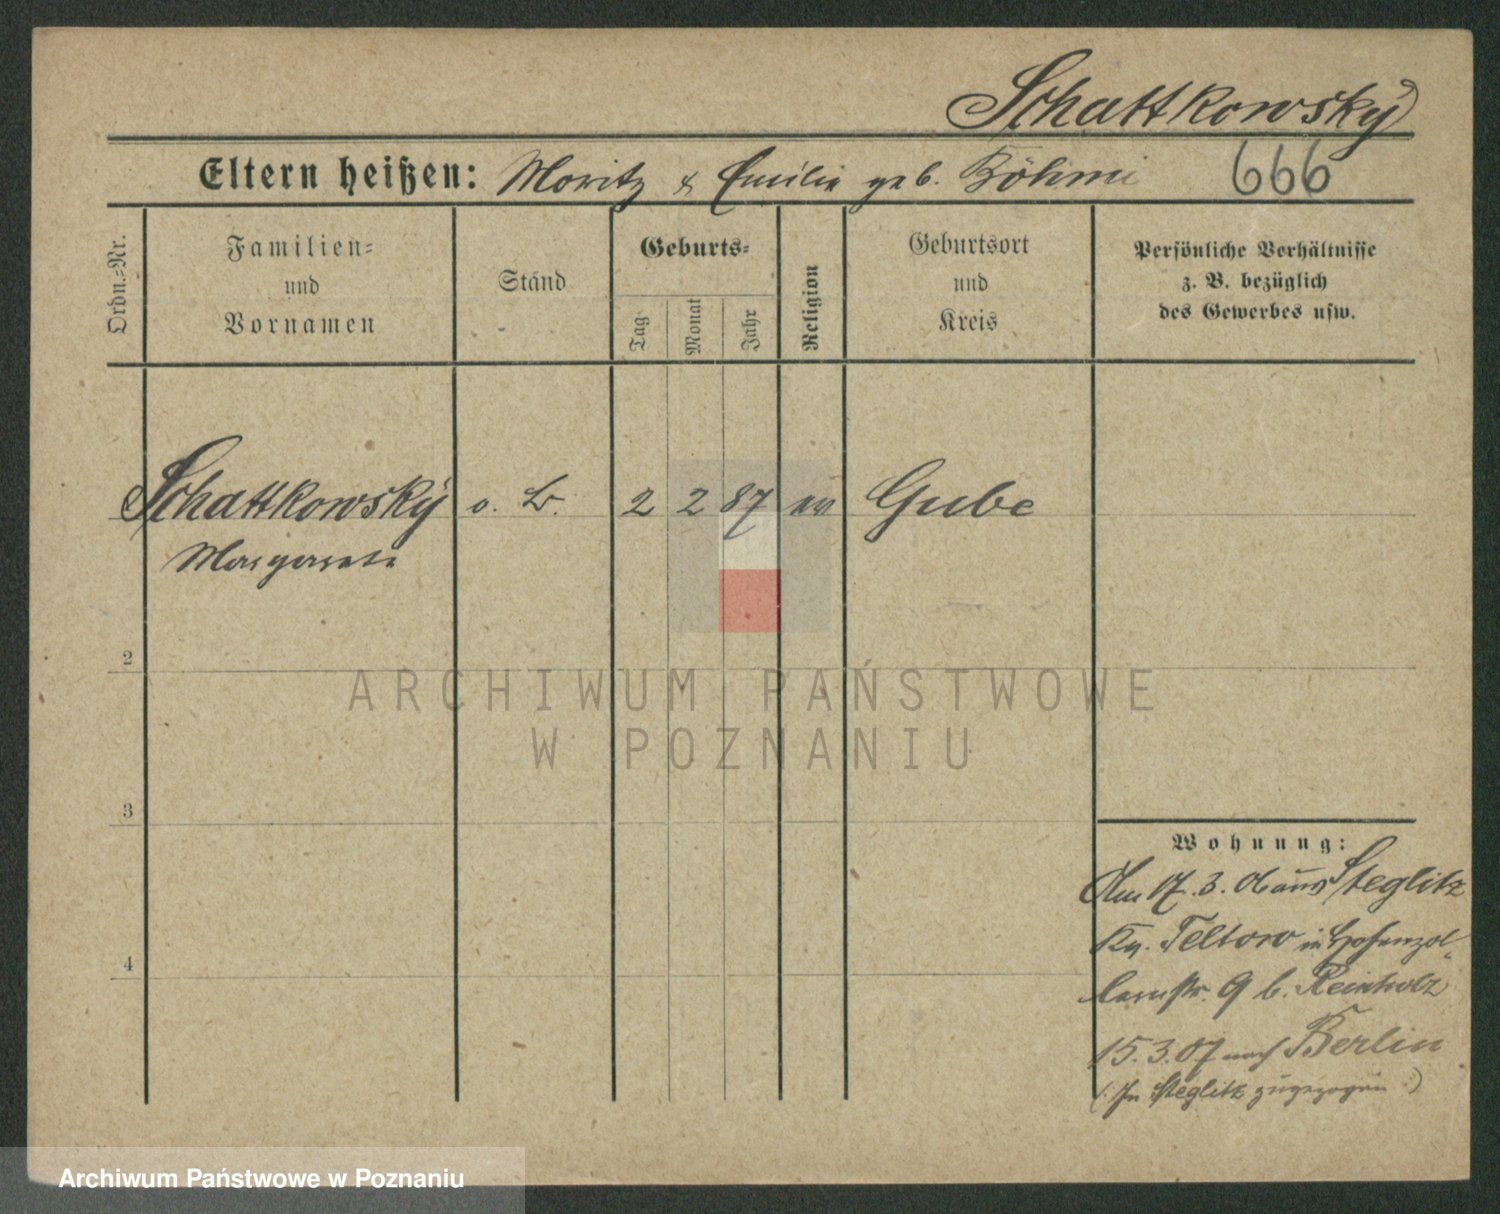 Schattkowsky
Eltern heißen: Moritz & Emilie geb. Böhm
666
Ordn.-Nr.
Familien-
und
Vornamen
Stand
Geburts-
Tag
Monat
Jahr
Religion
Geburtsort
und
Kreis
Persönliche Verhältnisse
z. B. bezüglich
des Gewerbes usw.
Schattkowsky o. B. 2 2 87 ev Gube
Margarete
2
3
4
Wohnung:
Am 17.3.06 aus Steglitz
Kr. Teltow in Hohenzol-
lernstr. 9 b. Reinholz
15.3.07 nach Berlin
(In Steglitz zugezogen.)
ARCHIWUM PAŃSTWOWE
W POZNANIU
Archiwum Państwowe w Poznaniu